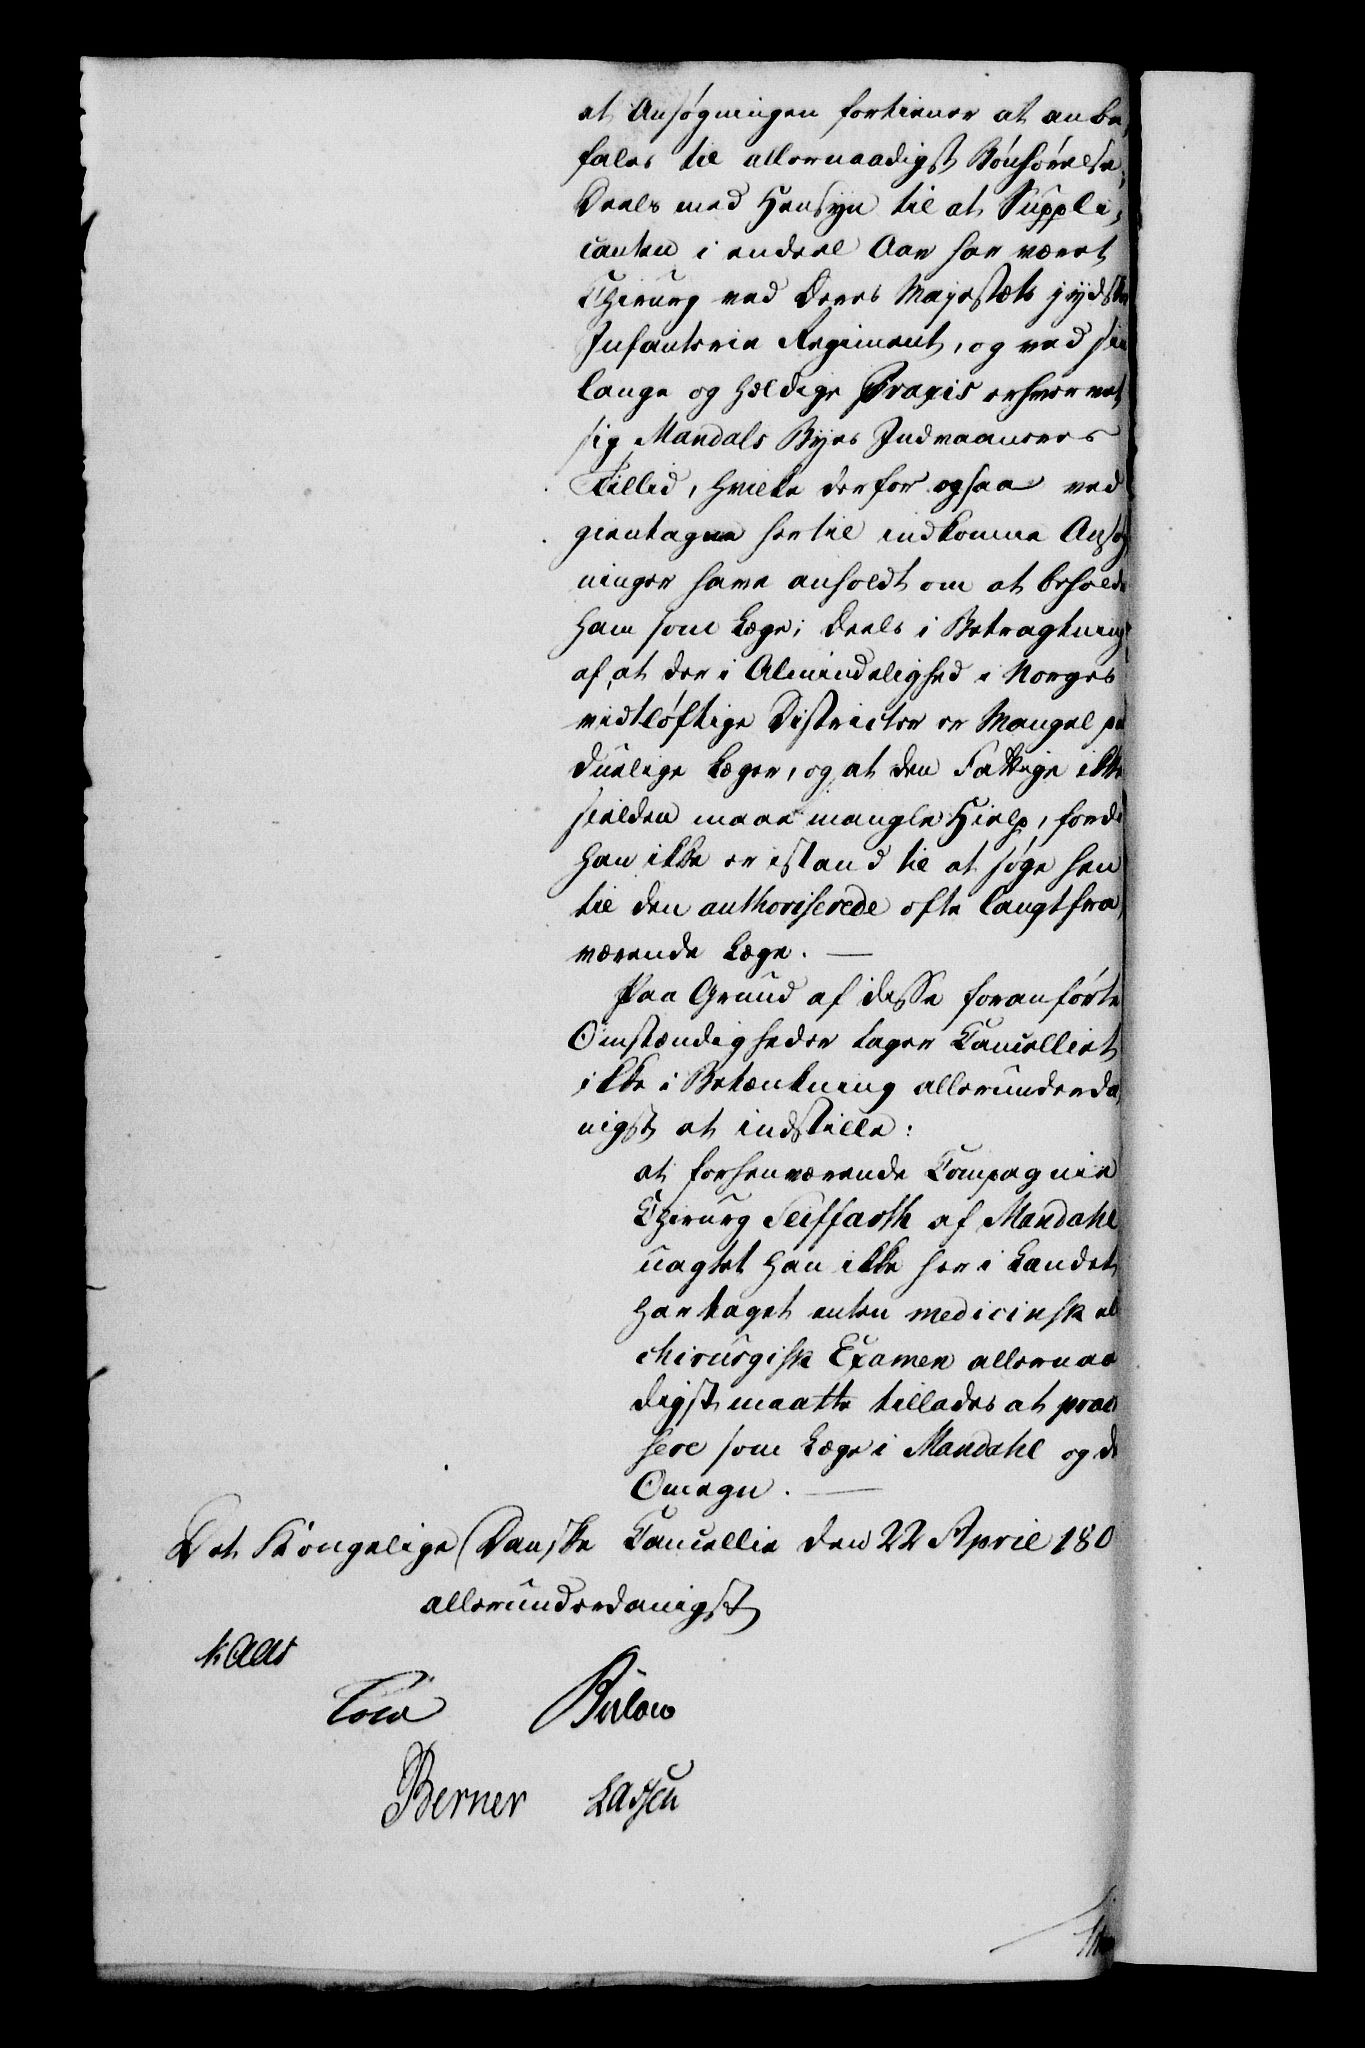 at Ansøgningen fortiener at anbe,
fales til allernaadigst Bønhørelse;
Deels med Hensyn til at Suppli,
canten i endeel Aar har været
Chirurg ved Deres Majestæts jydske
Infanterie Regiment, og ved sin
lange og heldige Praxis erhvervet
sig Mandals Byes Indvaaneres
Tillid, hvilke derfor ogsaa ved
gientagne hertil indkomne Ansøg
ninger have anholdt om at beholde
ham som Læge; deels i Betragtning
af, at der i Almindelighed i Norges
vidtløftige Districter er Mangel paa
duelige Læger, og at den Fattige ikke
sielden maae mangle Hielp, fordi
han ikke er istand til at søge hen
til den authoriserede ofte langtfra,
værende Læge. —
Paa Grund af disse foranførte
Omstændigheder tager Cancelliet
ikke i Betænkning allerunderda,
nigst at indstille:
at forhenværende Compagnie
Chirurg Seiffarth af Mandahl
uagtet han ikke her i Landet
har taget enten medicinsk el
chirurgisk Examen allernaa
digst maatte tillades at prac
sere som Læge i Mandahl og d
Omegn. —
Det Kongelige Danske Cancellie den 22 April 180
allerunderdanigst
Kaas
Cold Bülow
Berner Lassen